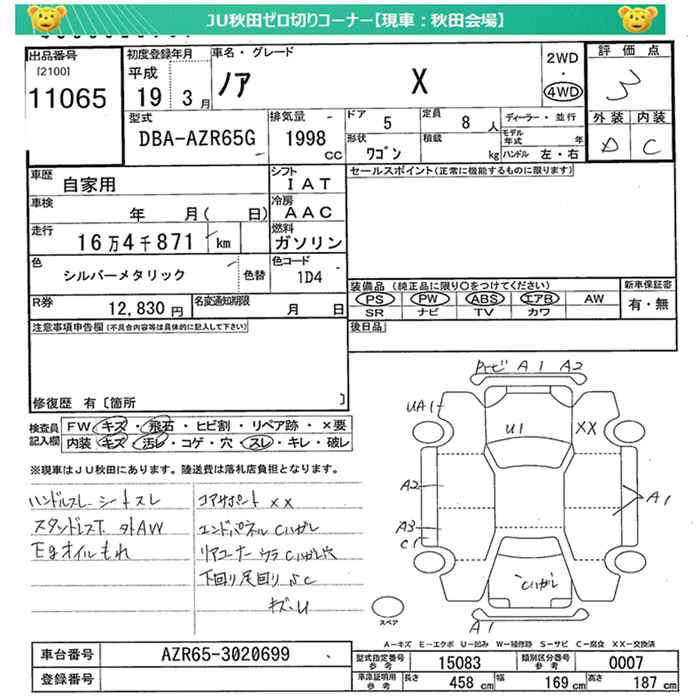 JU秋田ゼロ切りコーナー【現車：秋田会場】
出品番号
[2100]
11065
初度登録年月
平成
19 3月
車名・グレード
ノア X
2WD
・
4WD
評価点
3
外装 内装
D C
型式
DBA-AZR65G
排気量
1998 CC
ドア
5
定員
8人
形状
ワゴン
積載
kg
ディーラー・並行
モデル年式 年
ハンドル 左・右
車歴
自家用
シフト
IAT
車検
年 月( 日)
冷房
AAC
走行
16万4千871 km
燃料
ガソリン
色
シルバーメタリック
色替
色コード
1D4
R券
12,830円
名変通知期限
月 日
セールスポイント(正常に機能するものに限ります)
装備品(純正品に限り○をつけてください)
PS PW ABS エアB AW
SR ナビ TV カワ
新車保証書
有・無
後日品
注意事項申告欄(不具合内容等は具体的に記入して下さい)
修復歴 有〔箇所 〕
検査員記入欄
FW キズ・飛石・ヒビ割・リペア跡・×要
内装 キズ・汚レ・コゲ・穴・スレ・キレ・破レ
※現車はJU秋田にあります。陸送費は落札店負担となります。
ハンドルスレ シートスレ
スタッドレスT. 外AW
Egオイルもれ
コアサポート XX
エンドパネル Cハガレ
リアコーナー ウラ Cハガレ穴
下回り足回り SC
キズ・U
A1 A2
UA1
U1
XX
A2
A3
C1
A1
Cハガレ
A1
スペア
A－キズ E－エクボ U－凹み W－補修跡 S－サビ C－腐食 XX－交換済
車台番号
AZR65-3020699
登録番号
型式指定番号 参考
15083
類別区分番号 参考
0007
車庫証明用 参考
長さ 458 cm
幅 169 cm
高さ 187 cm